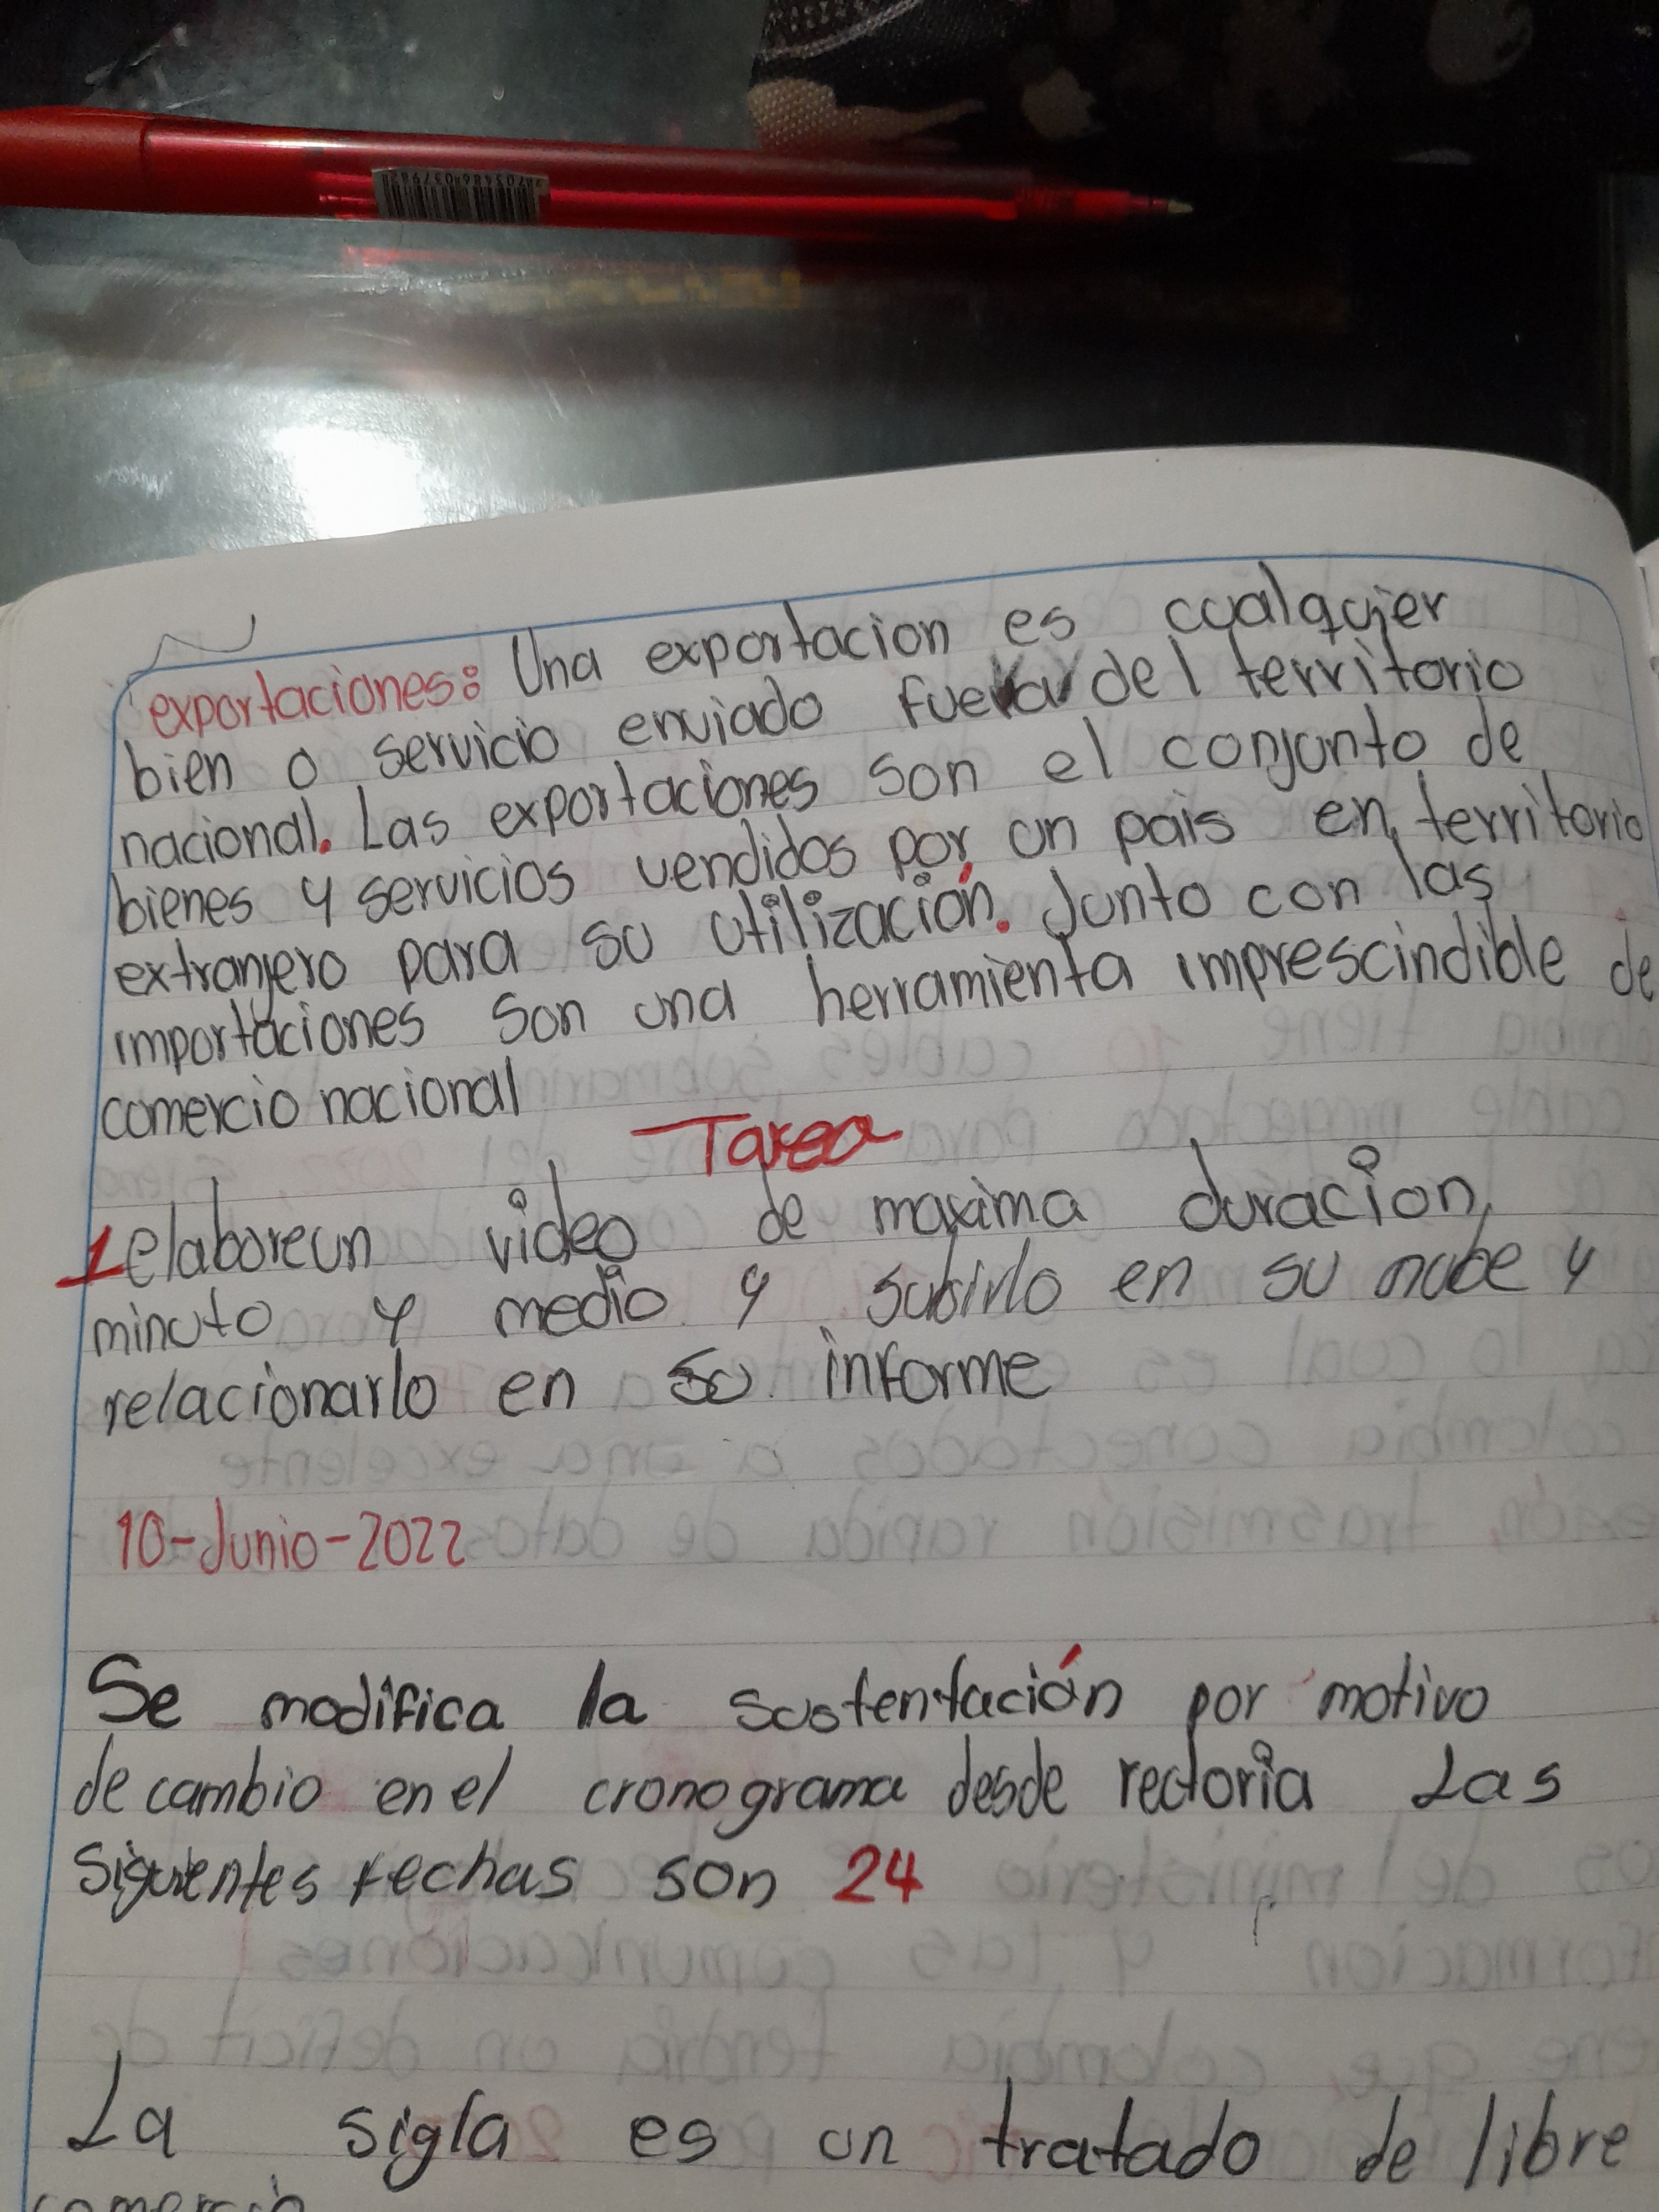 exportaciones: Una exportacion es cualquier
bien o servicio enviado fuera del territorio
nacional. Las exportaciones son el conjunto de
bienes y servicios vendidos por un pais en territorio
extranjero para su utilización. Junto con las
importaciones son una herramienta imprescindible de
comercio nacional
Tarea
1 elabore un video de maxima duracion
minuto y medio y subirlo en su nube y
relacionarlo en su informe
10-Junio-2022
Se modifica la sustentación por motivo
de cambio en el cronograma desde rectoria Las
siguientes fechas son 24
La sigla es un tratado de libre
comercio